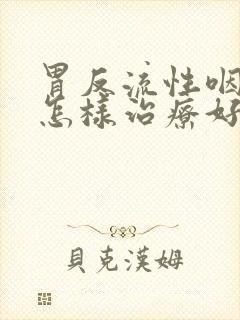 胃反流性咽
怎樣治療好
貝克漢姆